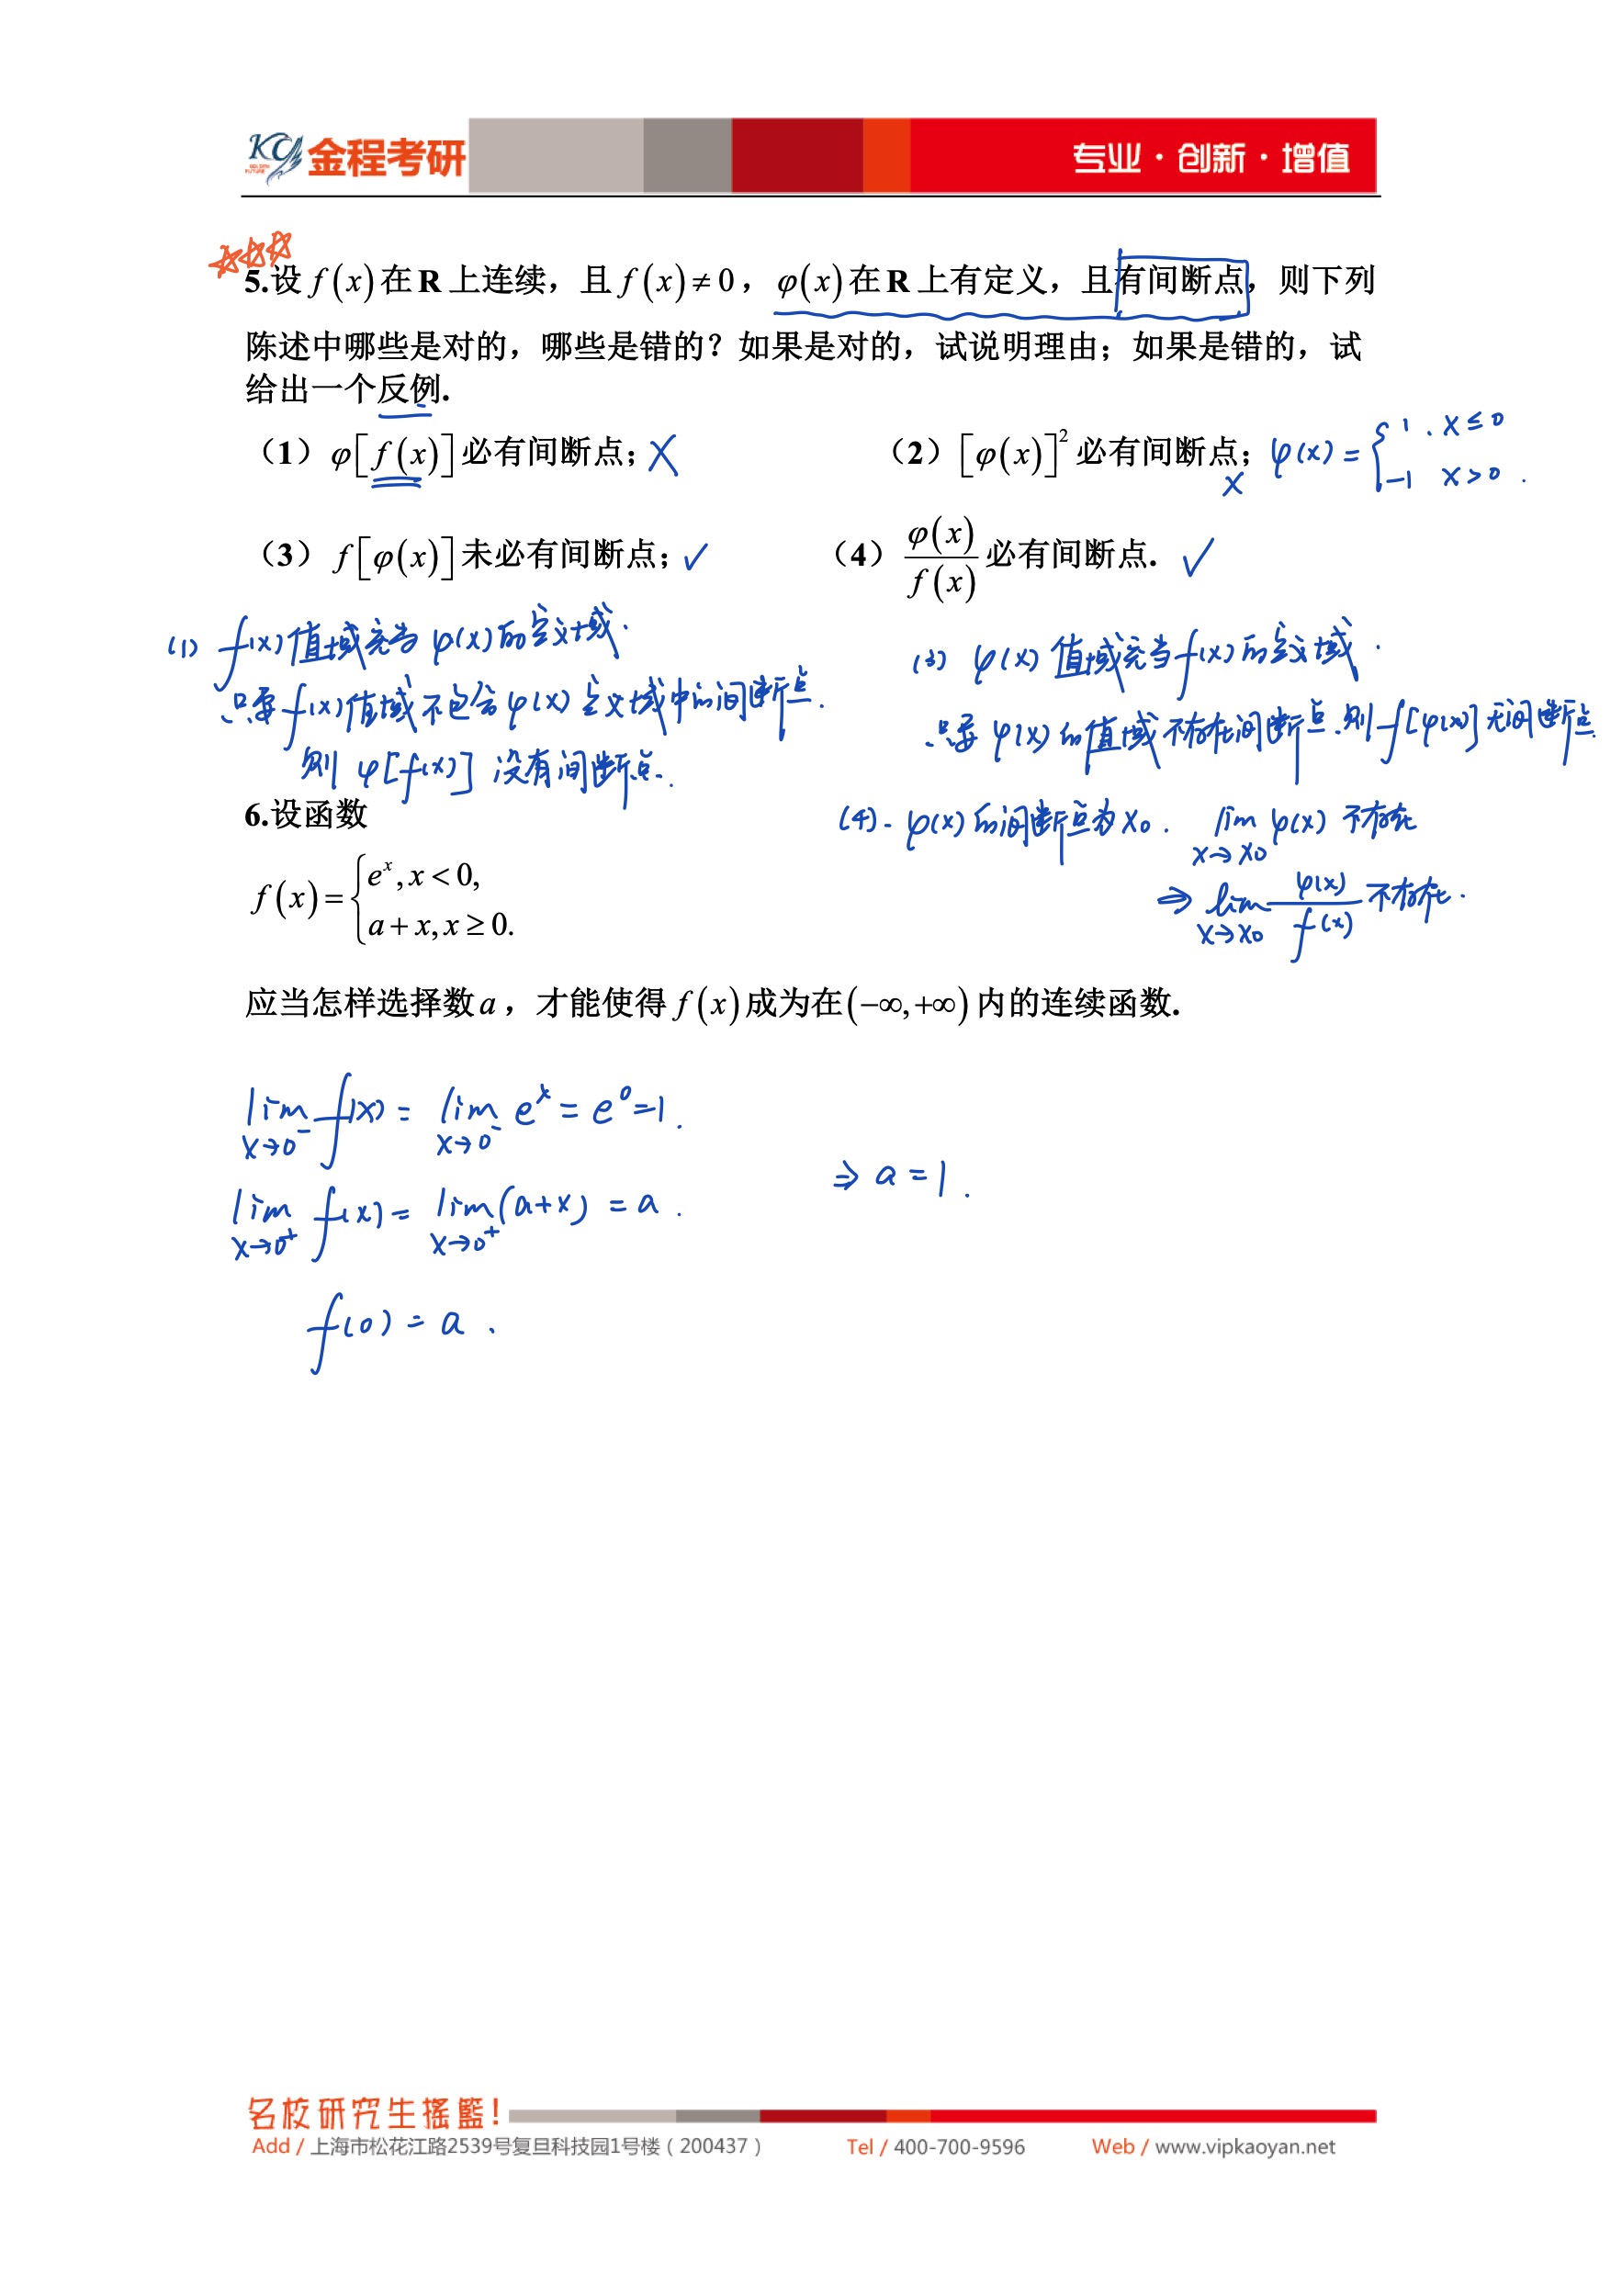 KC GOLDEN FUTURE 金程考研 专业·创新·增值
5.设 f(x) 在 R 上连续，且 f(x)≠0，φ(x) 在 R 上有定义，且有间断点，则下列
陈述中哪些是对的，哪些是错的？如果是对的，试说明理由；如果是错的，试
给出一个反例.
（1）φ[f(x)] 必有间断点；X （2）[φ(x)]² 必有间断点；X φ(x) = { 1 . x ≤ 0
-1 x > 0 .
（3）f[φ(x)] 未必有间断点；✓ （4）φ(x)/f(x) 必有间断点. ✓
(1) f(x) 值域充当 φ(x) 的定义域.
只要 f(x) 值域不包含 φ(x) 定义域中的间断点.
则 φ[f(x)] 没有间断点.
(3) φ(x) 值域充当 f(x) 的定义域.
只要 φ(x) 的值域不存在间断点.则 f[φ(x)] 无间断点.
(4). φ(x) 的间断点为 x₀. lim x→x₀ φ(x) 不存在
⇒ lim x→x₀ φ(x)/f(x) 不存在.
6.设函数
f(x) = { eˣ, x < 0,
a + x, x ≥ 0.
应当怎样选择数 a，才能使得 f(x) 成为在 (−∞,+∞) 内的连续函数.
lim x→0⁻ f(x) = lim x→0⁻ eˣ = e⁰ = 1.
⇒ a = 1.
lim x→0⁺ f(x) = lim x→0⁺ (a+x) = a.
f(0) = a.
名校研究生摇篮！
Add / 上海市松花江路2539号复旦科技园1号楼（200437） Tel / 400-700-9596 Web / www.vipkaoyan.net